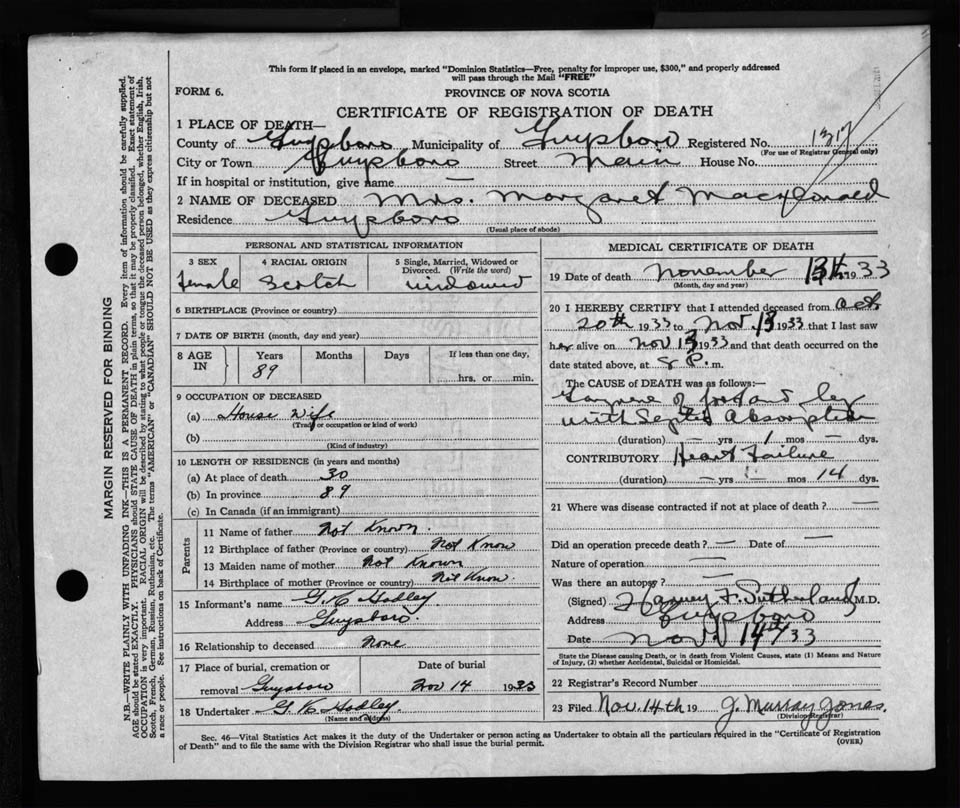 This form if placed in an envelope, marked "Dominion Statistics—Free, penalty for improper use, $300," and properly addressed
will pass through the Mail "FREE"
FORM 6.
PROVINCE OF NOVA SCOTIA
CERTIFICATE OF REGISTRATION OF DEATH
1 PLACE OF DEATH—
County of Guysboro Municipality of Guysboro Registered No. 1317
(For use of Registrar General only)
City or Town Guysboro Street Main House No.
If in hospital or institution, give name —
2 NAME OF DECEASED Mrs. Margaret MacDonald
Residence Guysboro
(Usual place of abode)
PERSONAL AND STATISTICAL INFORMATION
3 SEX 4 RACIAL ORIGIN 5 Single, Married, Widowed or Divorced. (Write the word)
female Scotch widowed
6 BIRTHPLACE (Province or country)
7 DATE OF BIRTH (month, day and year)
8 AGE IN Years Months Days If less than one day,
89 hrs. or min.
9 OCCUPATION OF DECEASED
(a) House Wife
(Trade, occupation or kind of work)
(b)
(Kind of industry)
10 LENGTH OF RESIDENCE (in years and months)
(a) At place of death 30
(b) In province 89
(c) In Canada (if an immigrant)
Parents
11 Name of father Not Known.
12 Birthplace of father (Province or country) Not Know
13 Maiden name of mother Not Known
14 Birthplace of mother (Province or country) Not Know.
15 Informant's name G. C Hadley
Address Guysboro.
16 Relationship to deceased None
17 Place of burial, cremation or Date of burial
removal Guysboro Nov 14 1933
18 Undertaker Hadley.
(Name and address)
MEDICAL CERTIFICATE OF DEATH
19 Date of death November 13th 1933
(Month, day and year)
20 I HEREBY CERTIFY that I attended deceased from Oct
20th 1933 to Nov 13 1933 that I last saw
her alive on Nov 13 1933 and that death occurred on the
date stated above, at 8 P. m.
The CAUSE OF DEATH was as follows:—
Gangrene of foot and leg
with Septic Absorption
(duration) — yrs 1 mos — dys.
CONTRIBUTORY Heart Failure
(duration) — yrs — mos 14 dys.
21 Where was disease contracted if not at place of death? —
Did an operation precede death? — Date of —
Nature of operation —
Was there an autopsy? —
(Signed) Harvey F. Sutherland M.D.
Address Guysboro
Date Nov 14th 33
State the Disease causing Death, or in death from Violent Causes, state (1) Means and Nature
of Injury, (2) whether Accidental, Suicidal or Homicidal.
22 Registrar's Record Number
23 Filed Nov. 14th 19 J. Murray Jones.
(Division Registrar)
Sec. 46—Vital Statistics Act makes it the duty of the Undertaker or person acting as Undertaker to obtain all the particulars required in the "Certificate of Registration
of Death" and to file the same with the Division Registrar who shall issue the burial permit.
(OVER)
MARGIN RESERVED FOR BINDING
N.B.—WRITE PLAINLY WITH UNFADING INK—THIS IS A PERMANENT RECORD. Every item of information should be carefully supplied.
AGE should be stated EXACTLY. PHYSICIANS should STATE CAUSE OF DEATH in plain terms, so that it may be properly classified. Exact statement of
OCCUPATION is very important. RACIAL ORIGIN will be described by stating to what people or tongue the deceased person belonged, whether English, Irish,
Scotch, French, German, Russian, Ruthenian, etc. The terms "AMERICAN" or "CANADIAN" SHOULD NOT BE USED as they express citizenship but not
a race or people. See instructions on back of Certificate.